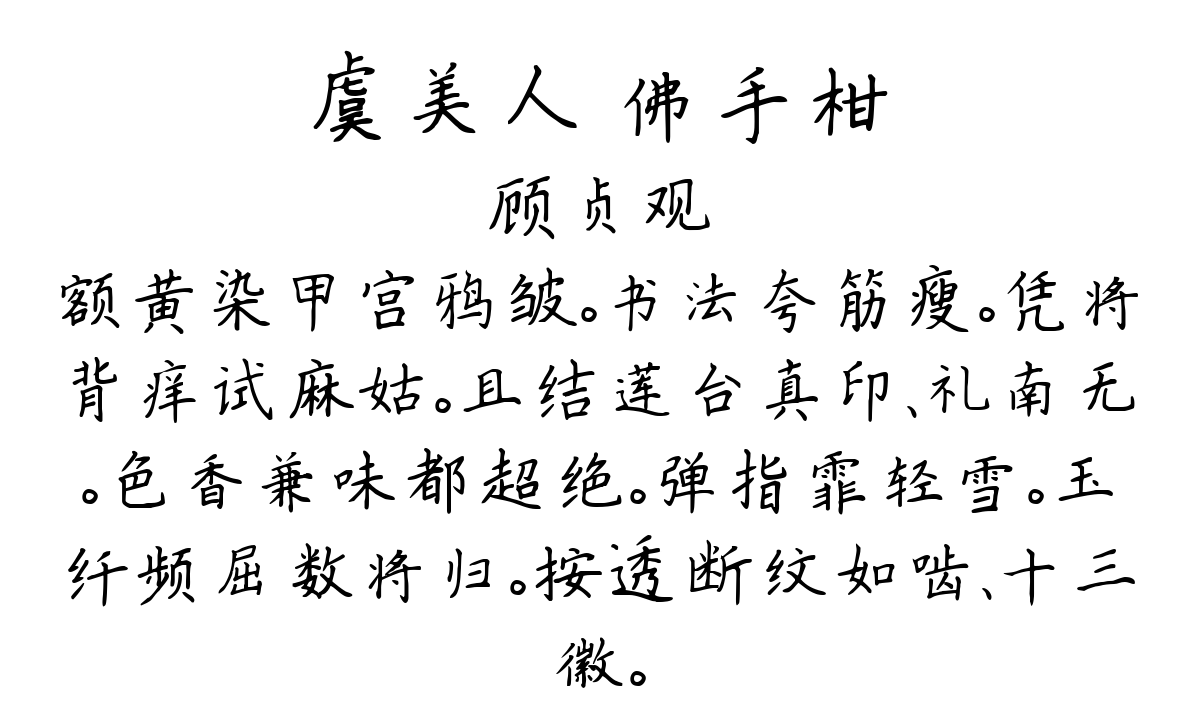 虞美人 佛手柑
顾贞观
额黄染甲宫鸦皱。书法夸筋瘦。凭将
背痒试麻姑。且结莲台真印、礼南无
。色香兼味都超绝。弹指霏轻雪。玉
纤频屈数将归。按透断纹如啮、十三
徽。